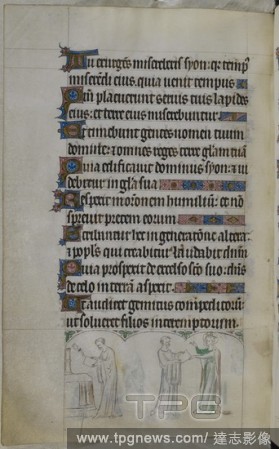 Tu exurgens misereberis syon: q̄r temp'
miserēdi eius, quia uenit tempus
Qm̄ placuerunt seruis tuis lapides
eius: et terre eius miserebuntur.
Et timebunt gentes nomen tuum
domine: & omnes reges terre gl'am tuā
Quia edificauit dominus syon: & ui
debitur in gl'ia sua
Respexit in orōnem humiliū: et nō
spreuit precem eorum
Scribantur hec in generatōne altera:
& popl's qui creabitur laudabit dnm̄
Quia prospexit de excelso scō suo: dn̄s
de celo in terrā aspexit
Ut audiret gemitus compeditorū:
ut solueret filios interemptorum
TPG
www.tpgnews.com/ 達志影像